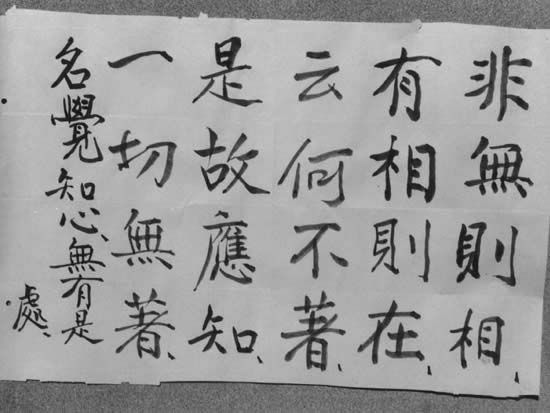 非無則相、
有相則在、
云何不著、
是故應知、
一切無著、
名覺知心、無有是
處、